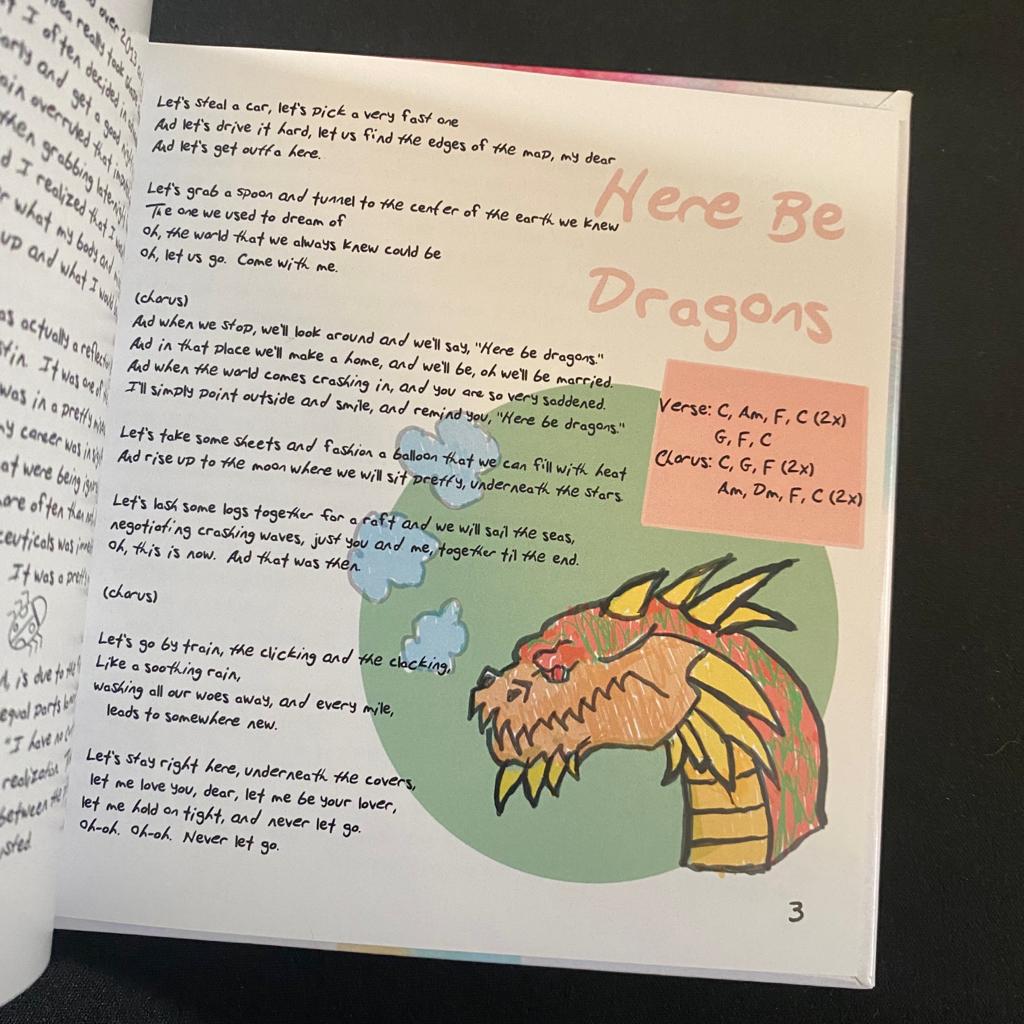 over 2013
idea really took
I often decided in
party and get a good night
overruled that
then grabbing late-night
d I realized that I
r what my body and
up and what I would
as actually a reflect
stin. It was one of
was in a pretty
my career was in
at were being
more often than not
ceuticals was
It was a pretty
is due to the
equal parts
"I have no
realization
between the
usted.
Here Be
Dragons
Let's steal a car, let's pick a very fast one
And let's drive it hard, let us find the edges of the map, my dear
And let's get outta here.
Let's grab a spoon and tunnel to the center of the earth we knew
The one we used to dream of
Oh, the world that we always knew could be
Oh, let us go. Come with me.
(chorus)
And when we stop, we'll look around and we'll say, "Here be dragons."
And in that place we'll make a home, and we'll be, oh we'll be married.
And when the world comes crashing in, and you are so very saddened.
I'll simply point outside and smile, and remind you, "Here be dragons."
Let's take some sheets and fashion a balloon that we can fill with heat
And rise up to the moon where we will sit pretty, underneath the stars
Let's lash some logs together for a raft and we will sail the seas,
negotiating crashing waves, just you and me, together til the end.
Oh, this is now. And that was then.
(chorus)
Let's go by train, the clicking and the clacking,
Like a soothing rain,
washing all our woes away, and every mile,
leads to somewhere new.
Let's stay right here, underneath the covers,
let me love you, dear, let me be your lover,
let me hold on tight, and never let go.
Oh-oh. Oh-oh. Never let go.
Verse: C, Am, F, C (2x)
G, F, C
Chorus: C, G, F (2x)
Am, Dm, F, C (2x)
3